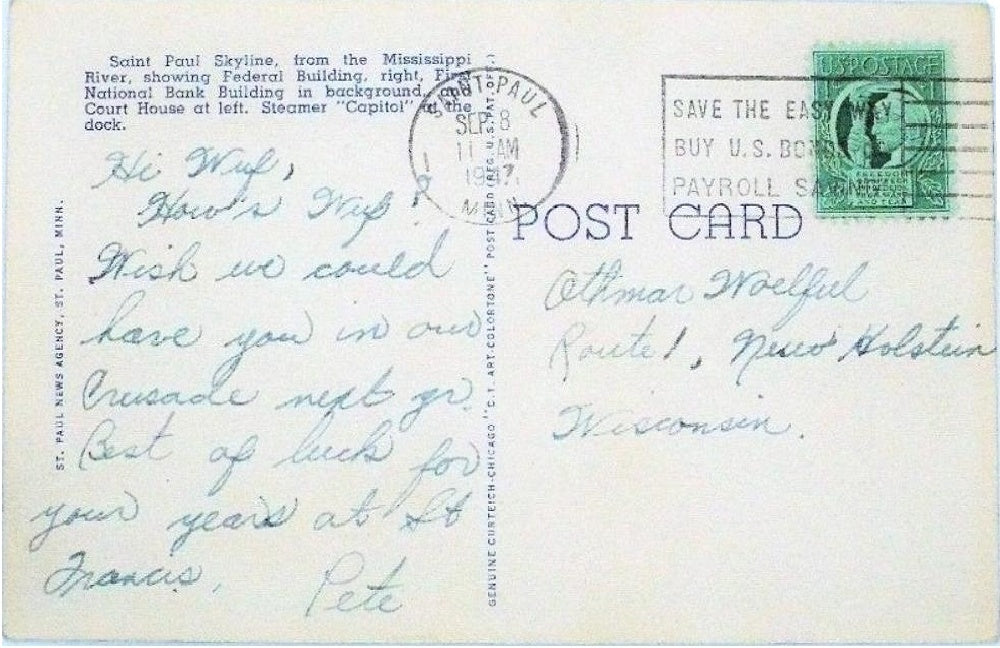 Saint Paul Skyline, from the Mississippi
River, showing Federal Building, right, First
National Bank Building in background, and
Court House at left. Steamer "Capitol" at the
dock.
Hi Wuf,
How's Wuf?
Wish we could
have you in our
Crusade next yr.
Best of luck for
your years at St
Francis.
Pete
ST. PAUL NEWS AGENCY, ST. PAUL, MINN.
GENUINE CURTEICH-CHICAGO "C.T. ART-COLORTONE" POST CARD (REG. U.S. PAT. OFF.)
SAINT PAUL
SEP 8
11 AM
1947
MINN
SAVE THE EASY WAY
BUY U.S. BONDS
PAYROLL SAVINGS
U.S. POSTAGE
POST CARD
Othmar Woelful
Route 1, New Holstein
Wisconsin.